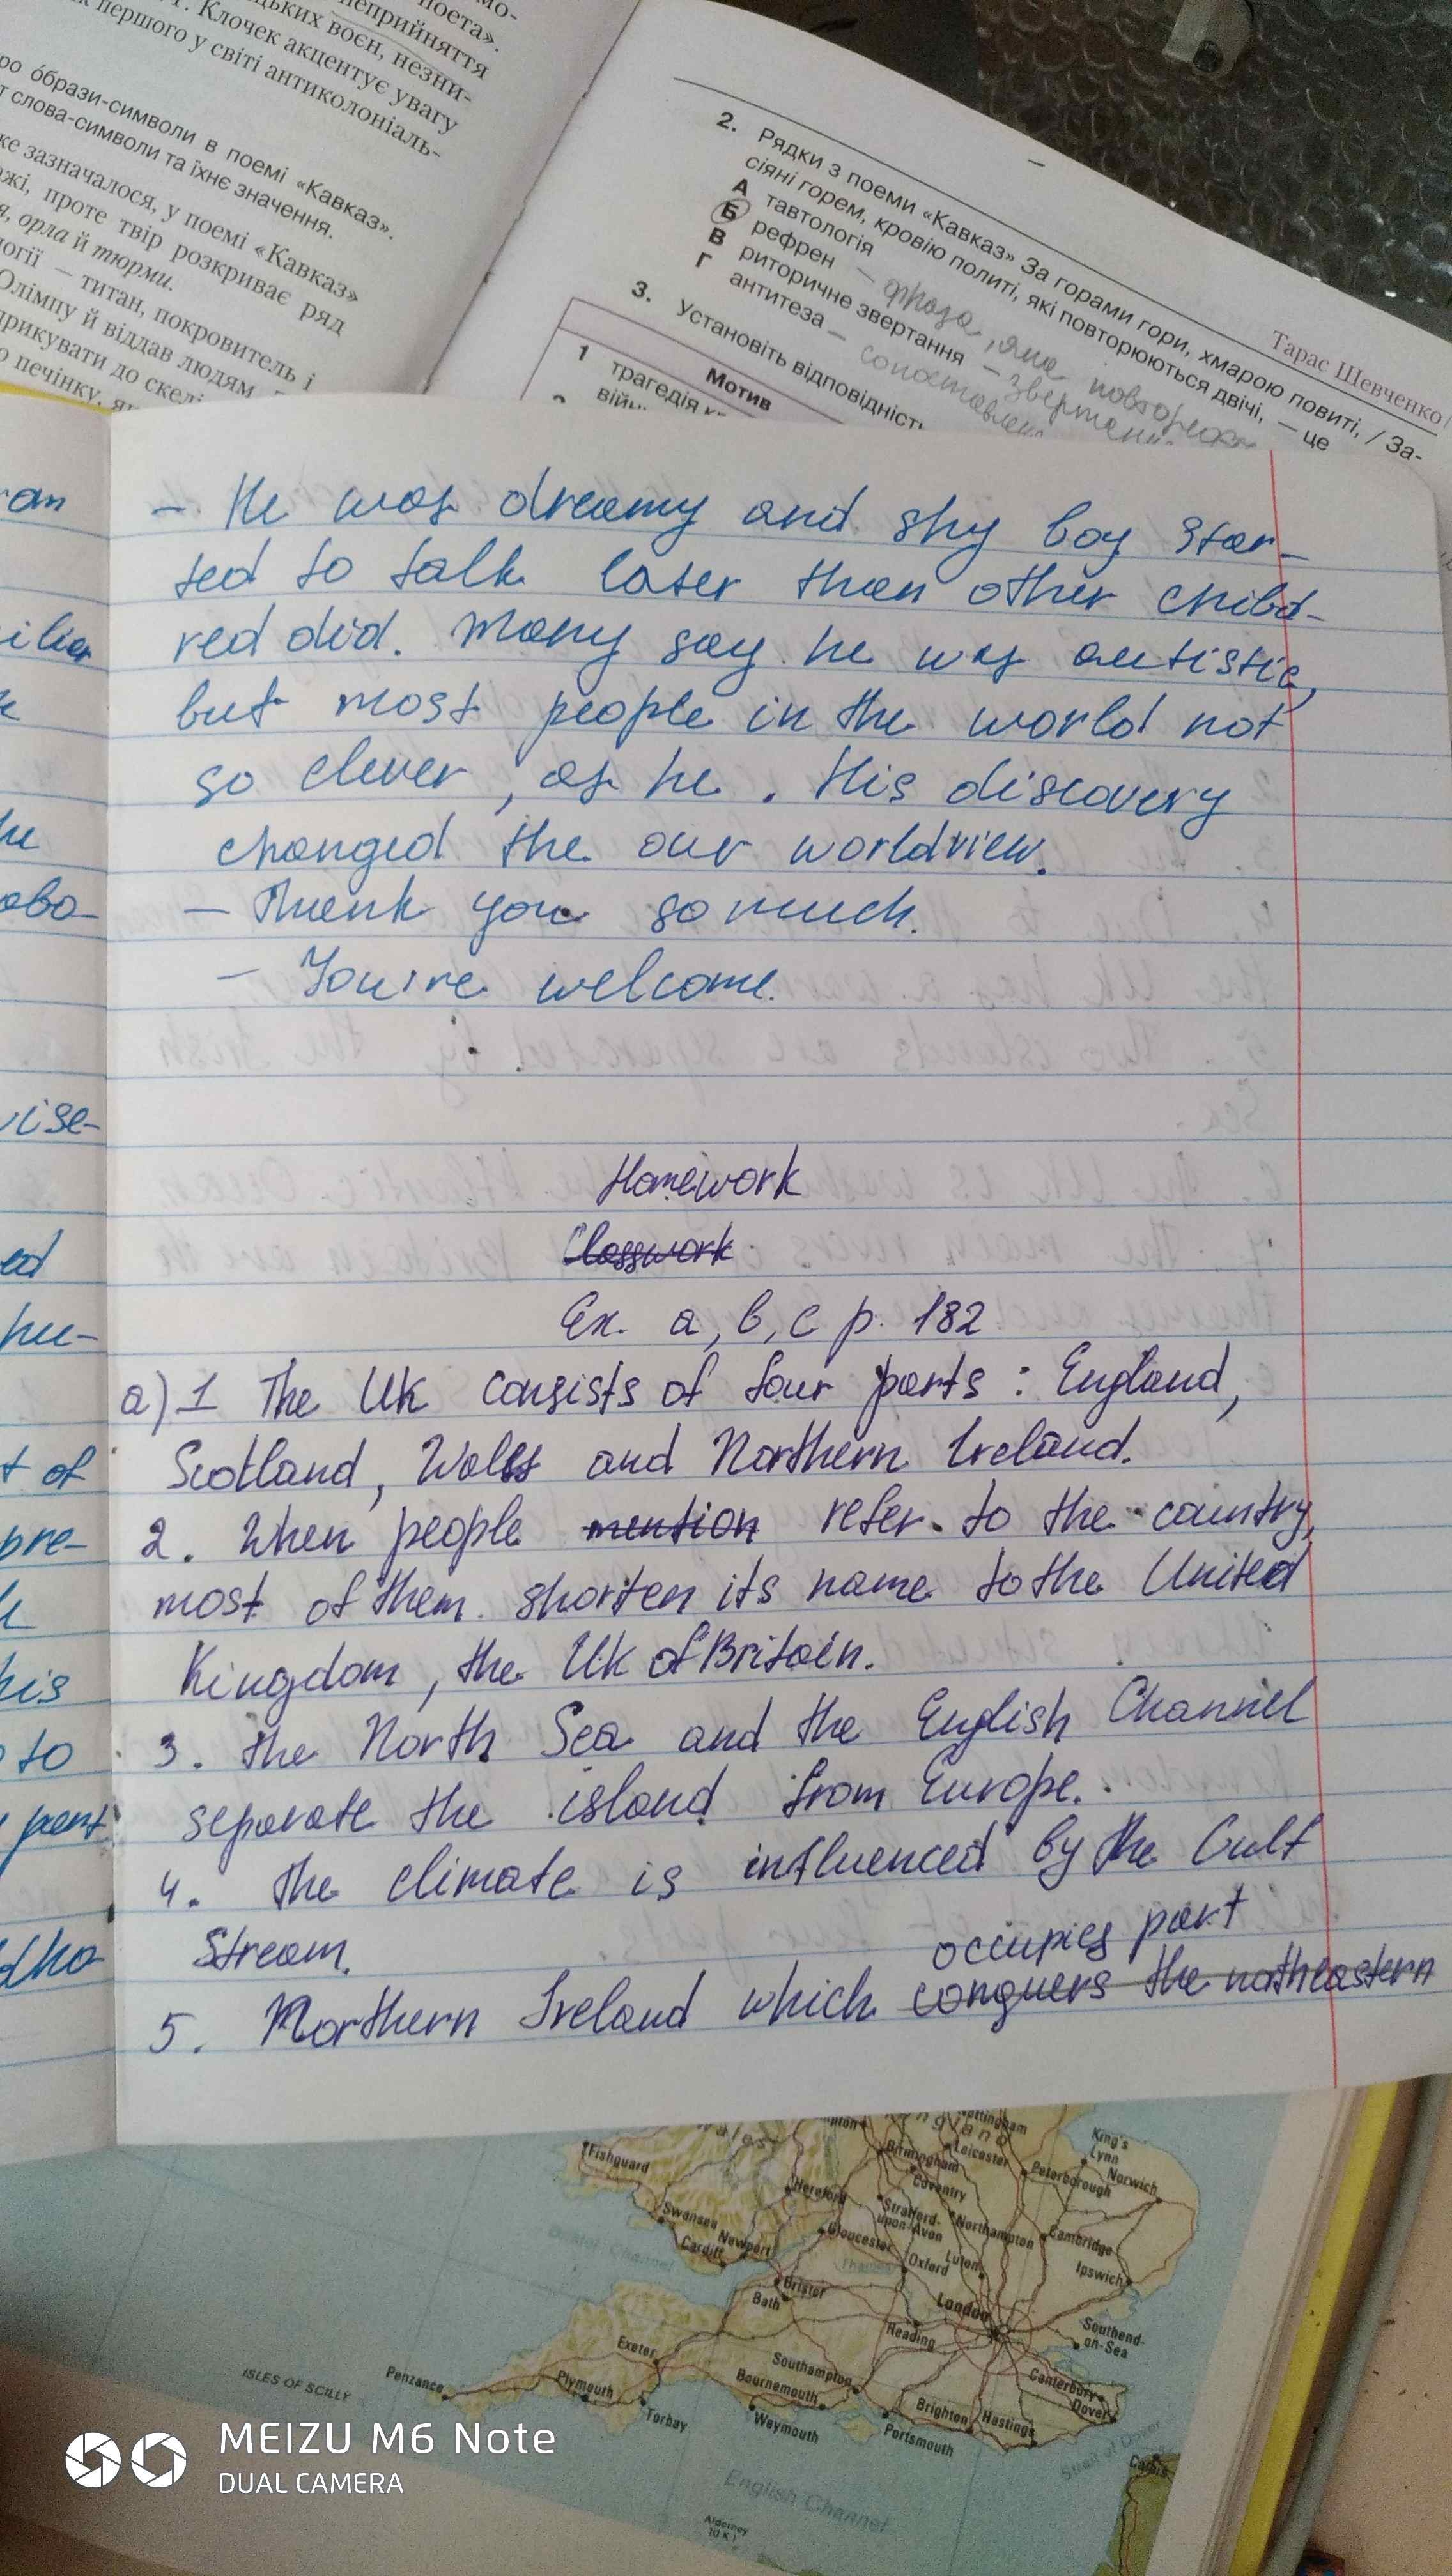 поета».
неприйняття
цьких воєн, незни-
Г. Клочек акцентує увагу
першого у світі антиколоніаль-
ро образи-символи в поемі «Кавказ».
слова-символи та їхнє значення.
же зазначалося, у поемі «Кавказ»
проте твір розкриває ряд
орла й тюрми.
логії — титан, покровитель і
Олімпу й віддав людям
прикувати до скелі
печінку,
Тарас Шевченко
2. Рядки з поеми «Кавказ» За горами гори, хмарою повиті, / За-
сіяні горем, кровію политі, які повторюються двічі, — це
А тавтологія
Б рефрен – фраза, яка повторює
В риторичне звертання – звертання
Г антитеза – сопоставлен
3. Установіть відповідність
Мотив
1 трагедія
війн
- He was dreamy and shy boy star-
ted to talk later than other child-
red did. Many say he was autistic,
but most people in the world not
so clever, as he. His discovery
changed the our worldview.
- Thank you so much.
- You're welcome.
Homework
Classwork
Ex. a, b, c p. 182
a) 1 The UK consists of four parts: England,
Scotland, Wales and Northern Ireland.
2. When people mention refer to the country,
most of them shorten its name to the United
Kingdom, the UK of Britain.
3. The North Sea and the English Channel
separate the island from Europe.
4. The climate is influenced by the Gulf
Stream.
occupies part
5. Northern Ireland which conquers the northeastern
Nottingham
King's
Lynn
Fishguard
Birmingham
Leicester
Peterborough
Norwich
Hereford
Coventry
Swansea
Stratford-
upon-Avon
Northampton
Cambridge
Cardiff
Newport
Gloucester
Oxford
Luton
Ipswich
Bristol
Bath
London
Reading
Southend-
on-Sea
Exeter
Southampton
Canterbury
Dover
ISLES OF SCILLY
Penzance
Plymouth
Bournemouth
Brighton
Hastings
Torbay
Weymouth
Portsmouth
Strait of Dover
Calais
English Channel
Alderney
MEIZU M6 Note
DUAL CAMERA